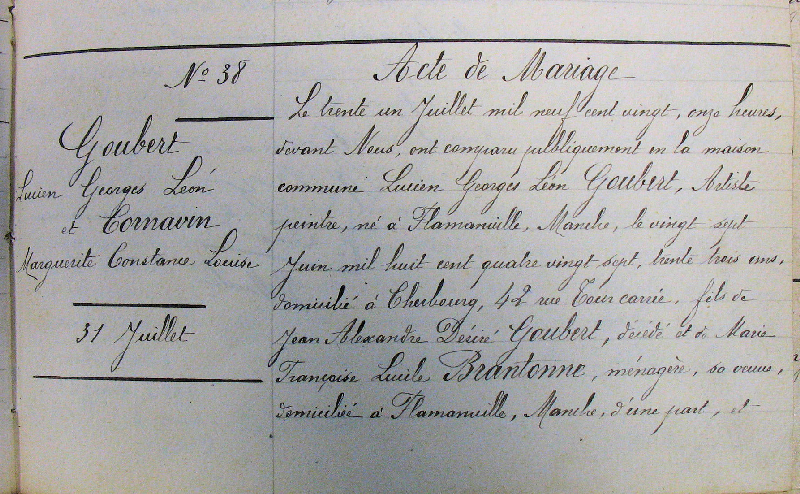 Nº 38
Goubert
Lucien Georges Léon
et Cornavin
Marguerite Constance Louise
31 Juillet
Acte de Mariage
Le trente un Juillet mil neuf cent vingt, onze heures,
devant Nous, ont comparu publiquement en la maison
commune Lucien Georges Léon Goubert, Artiste
peintre, né à Flamanville, Manche, le vingt sept
Juin mil huit cent quatre vingt sept, trente trois ans,
domicilié à Cherbourg, 42 rue Tour carrée, fils de
Jean Alexandre Désiré Goubert, décédé et de Marie
Françoise Lucile Brantonne, ménagère, sa veuve,
domiciliée à Flamanville, Manche, d'une part, et